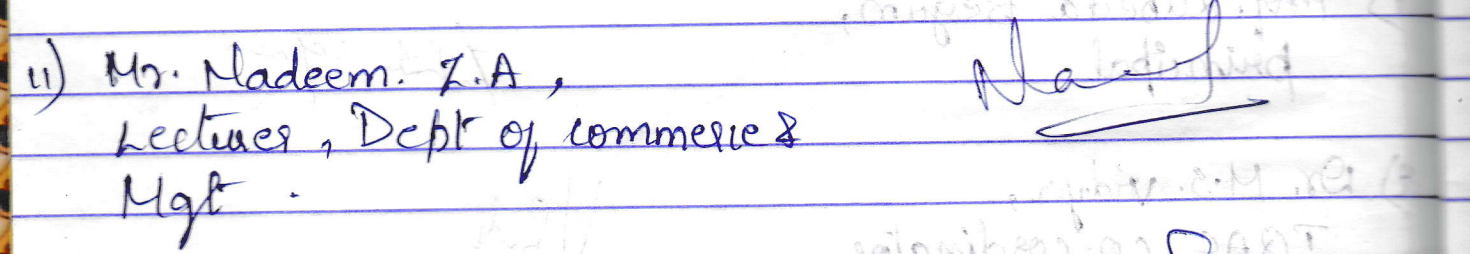 11) Mr. Nadeem. Z.A,
Lecturer, Dept of commerce &
Mgt.